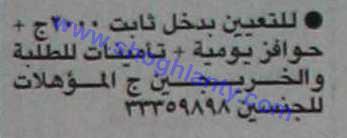 ● للتعيين بدخل ثابت ٢٠٠٠ج +
حوافز يومية + تأمينات للطلبة
والخريجين ج المؤهلات
للجنسين ٣٣٣٥٩٨٩٨
www.shoghlanty.com